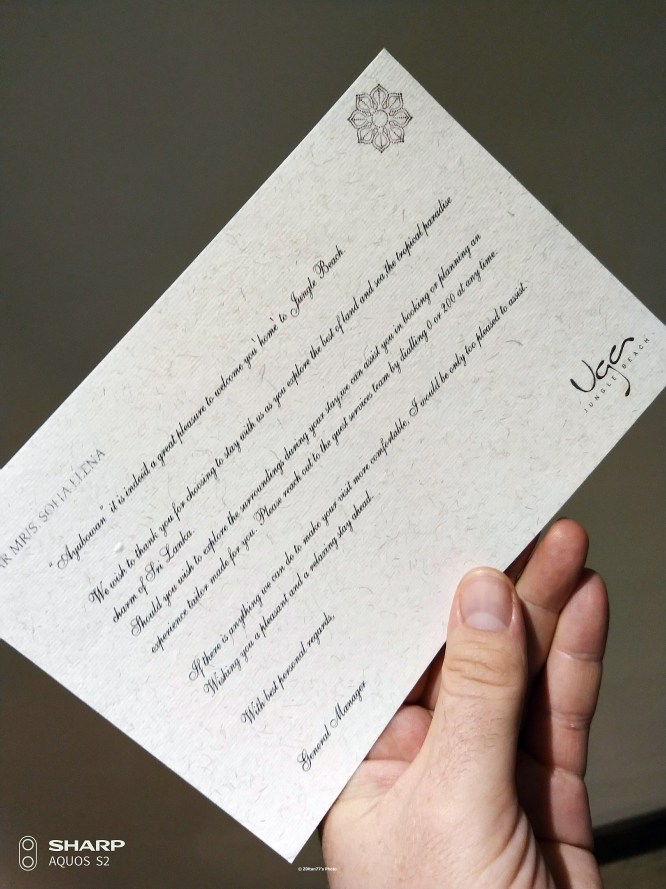 MR/S SOFIA ELENA
"Ayubowan" it is indeed a great pleasure to welcome you 'home' to Jungle Beach.
We wish to thank you for choosing to stay with us as you explore the best of land and sea, the tropical paradise
charm of Sri Lanka.
Should you wish to explore the surroundings during your stay, we can assist you in booking or planning an
experience tailor made for you. Please reach out to the guest services team by dialling 0 or 200 at any time.
If there is anything we can do to make your visit more comfortable, I would be only too pleased to assist.
Wishing you a pleasant and a relaxing stay ahead.
With best personal regards,
General Manager
Uga
JUNGLE BEACH
SHARP
AQUOS S2